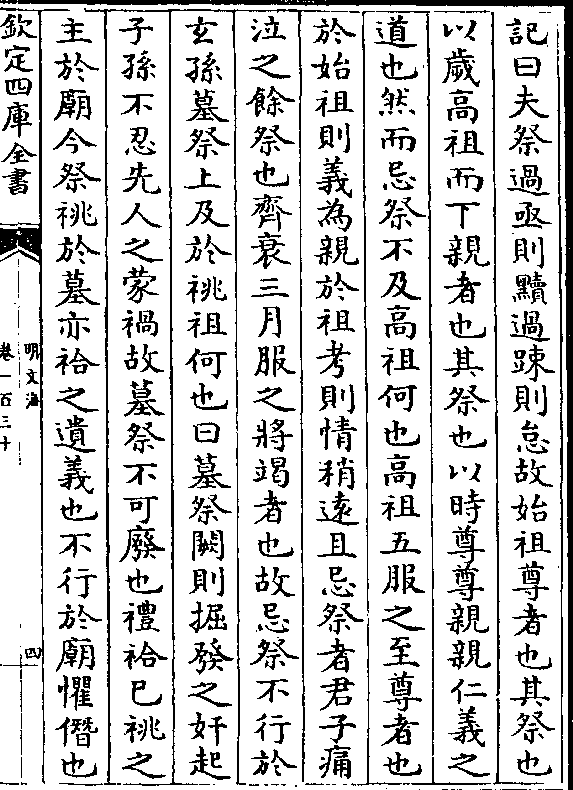 記曰夫祭過亟則黷過踈則怠故始祖尊者也其祭也
以歲高祖而下親者也其祭也以時尊尊親親仁義之
道也然而忌祭不及高祖何也高祖五服之至尊者也
於始祖則義為親於祖考則情稍遠且忌祭者君子痛
泣之餘祭也齊衰三月服之將竭者也故忌祭不行於
玄孫墓祭上及於祧祖何也曰墓祭闕則掘發之奸起
子孫不忍先人之蒙禍故墓祭不可廢也禮祫已祧之
主於廟今祭祧於墓亦祫之遺義也不行於廟懼僭也
欽定四庫全書
明文海
卷一百三十
四